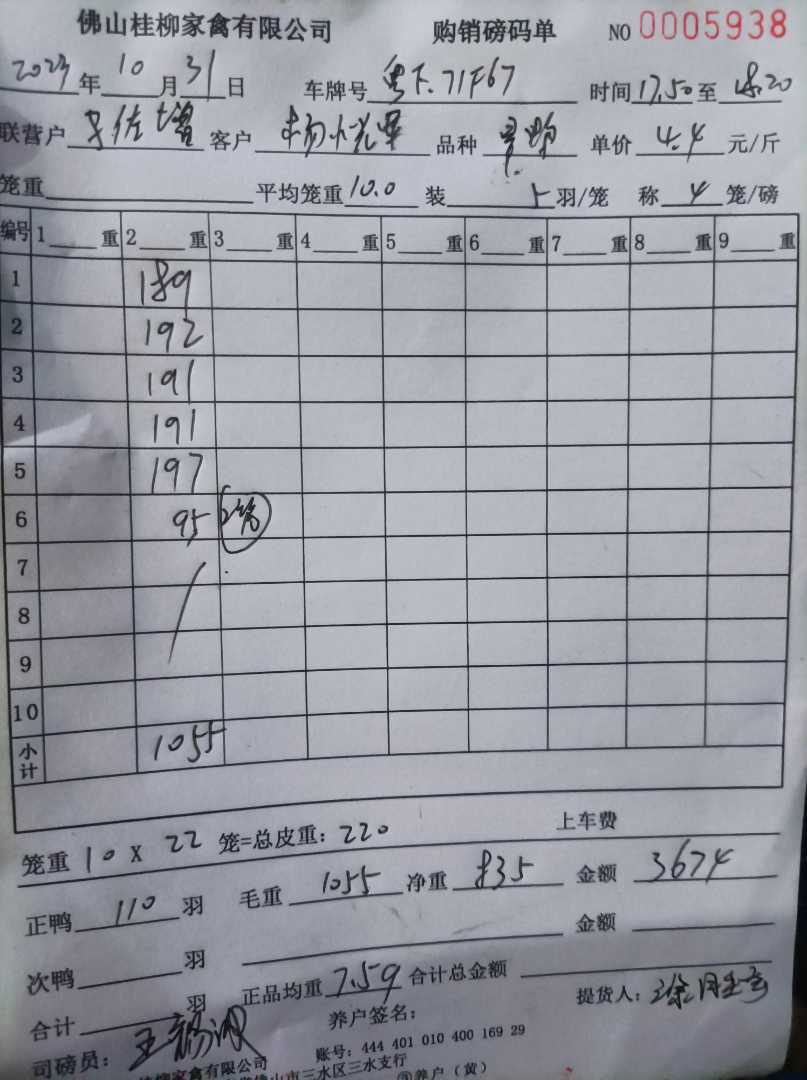 佛山桂柳家禽有限公司 购销磅码单 NO 0005938
2023年10月31日 车牌号 粤F.71F67 时间17.50至18.20
联营户 客户 品种 单价 4.4 元/斤
笼重 平均笼重10.0 装 5 羽/笼 称 4 笼/磅
编号 1 重 2 重 3 重 4 重 5 重 6 重 7 重 8 重 9 重
1 189
2 192
3 191
4 191
5 197
6 95 2笼
7
8
9
10
小计 1055
笼重 10 X 22 笼=总皮重：220 上车费
正鸭 110 羽 毛重 1055 净重 835 金额 3674
次鸭 羽 金额
合计 羽 正品均重 7.59 合计总金额
司磅员： 养户签名： 提货人：
账号：444 401 010 400 169 29
桂柳家禽有限公司
佛山市三水区三水支行
③养户（黄）